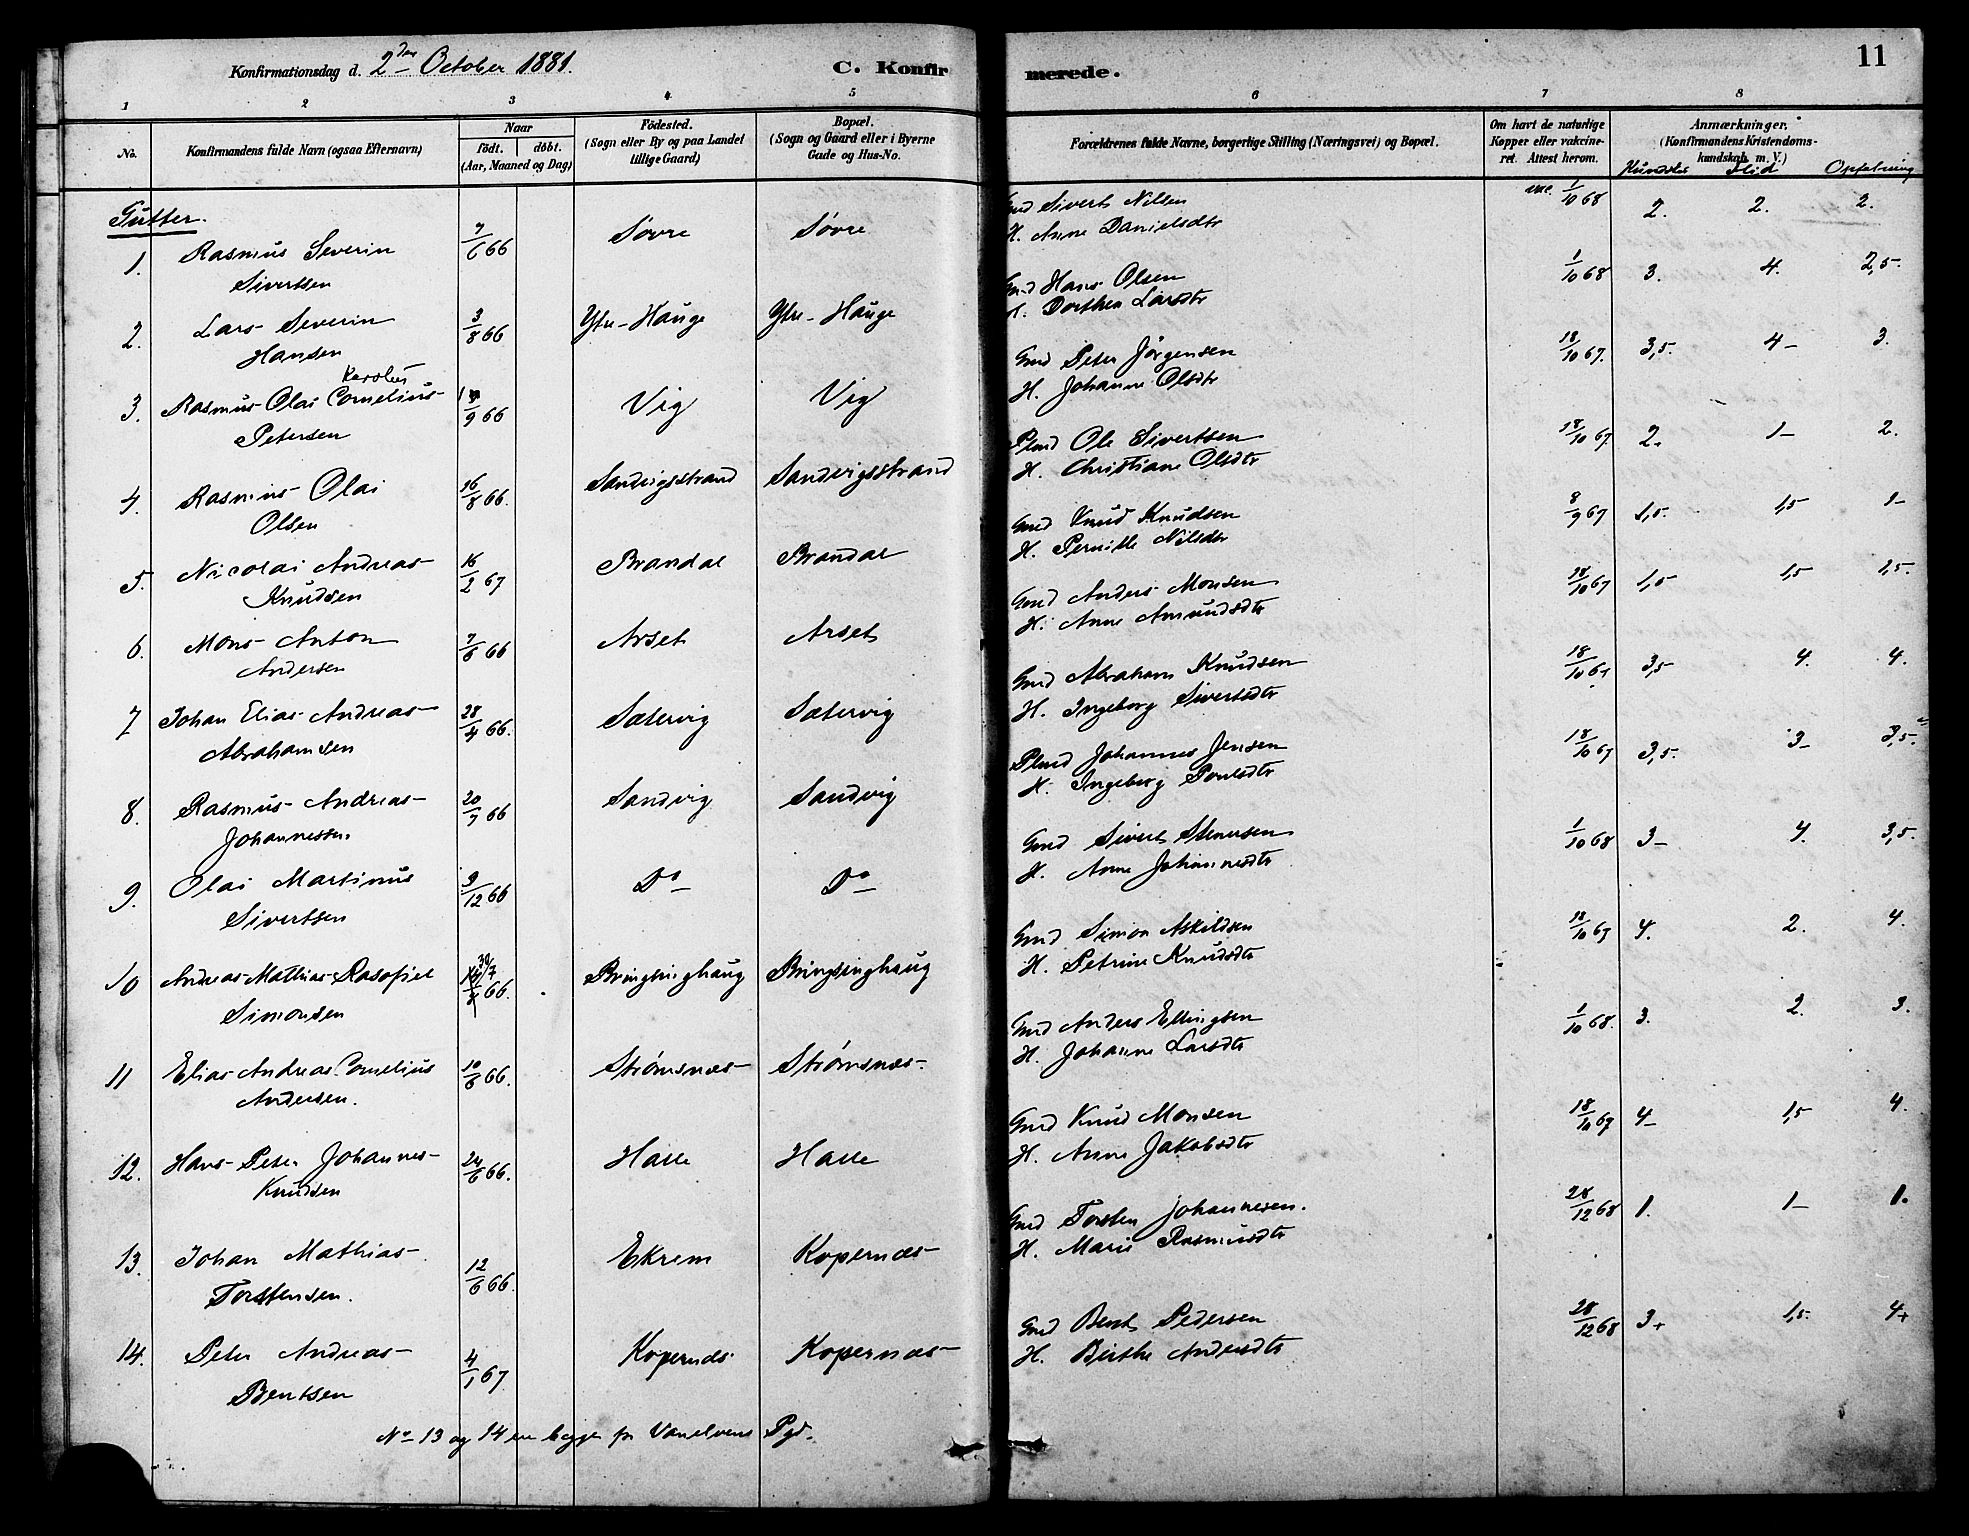 Konfirmationsdag d. 2den October 1881.
C. Konfirmerede.
11
1 2 3 4 5 6 7 8
No.
Konfirmandens fulde Navn (ogsaa Efternavn)
Naar
födt. döbt.
(Aar, Maaned og Dag)
Födested.
(Sogn eller By og paa Landet
tillige Gaard)
Bopæl.
(Sogn og Gaard eller i Byerne
Gade og Hus-No.
Forældrenes fulde Navne, borgerlige Stilling (Næringsvei) og Bopæl.
Om havt de naturlige
Kopper eller vakcine-
ret. Attest herom.
Anmærkninger.
(Konfirmandens Kristendoms-
kundskab m. V.)
Kundsk Flid Opførsling
Gutter.
1. Rasmus Severin 7/6 66 Søvre Søvre Gmd Sivert Nilsen vac. 1/10 68 2. 2. 2.
Sivertsen H. Anne Danielsdtr
2. Lars Severin 3/8 66 Ytre-Hauge Ytre-Hauge Gmd Hans Olsen 1/10 68 3. 4. 2,5.
Hansen H. Dorthea Larsdtr
Karolus
3. Rasmus Olai Cornelius 9 66 Vig Vig Gmd Peter Jørgensen 18/10 67. 3,5. 4- 3.
Petersen H. Johanne Olsdtr
4. Rasmus Olai 16/8 66. Sandvigsstrand Sandvigsstrand Plmd Ole Sivertsen 18/10 67. 2. 1- 2.
Olsen H. Christiane Olsdtr
5. Nicolai Andreas 16/2 67 Brandal Brandal Gmd Knud Knudsen 8/9 67 1,5. 1,5 1-
Knudsen H. Pernille Nilsdtr
6. Mons Anton 7/6 66 Arset Arset Gmd Anders Monsen 18/10 67 1,5 1,5 1,5.
Andersen H. Anne Amundsdtr
7 Johan Elias Andreas 28/4 66. Sætervig Sætervig Gmd Abraham Knudsen 18/10 67 3,5 4. 4.
Abrahamsen H. Ingeborg Sivertsdtr
8. Rasmus Andreas 20/7 66 Sandvig Sandvig Plmd Johannes Jensen 18/10 67 3,5. 3- 3,5.
Johannessen H. Ingeborg Poulsdtr
9. Olai Martinus 9/12 66 Do Do Gmd Sivert Stenersen 1/10 68 3- 4. 3,5.
Sivertsen H. Anne Johannesdtr
10 Andreas Mathias Rasofiel 30/7 66. Bringsinghaug Bringsinghaug Gmd Simon Askildsen 18/10 67 4. 2. 4.
Simonsen H. Petrine Knudsdtr
11 Elias Andreas Cornelius 10/6 66. Strømsnæs Strømsnæs. Gmd Anders Ellingsen 1/10 68. 3. 2. 3.
Andersen. H. Johanne Larsdtr
12. Hans Peter Johannes 24/6 66. Halle Halle Gmd Knud Monsen 18/10 67 4- 1,5 4.
Knudsen H. Anne Jakobsdtr
13. Johan Mathias 12/6 66. Ekrem Kopernæs Gmd Torsten Johannesen. 28/12 68 1. 1- 1.
Torstensen. H. Marie Rasmusdtr
14. Peter Andreas 4/1 67 Kopernæs Kopernæs Gmd Bent Pedersen 28/12 68 3+ 1,5. 4+
Bentsen H. Birthe Andersdtr
No 13 og 14 ere begge fra Vanelvens Pgd.